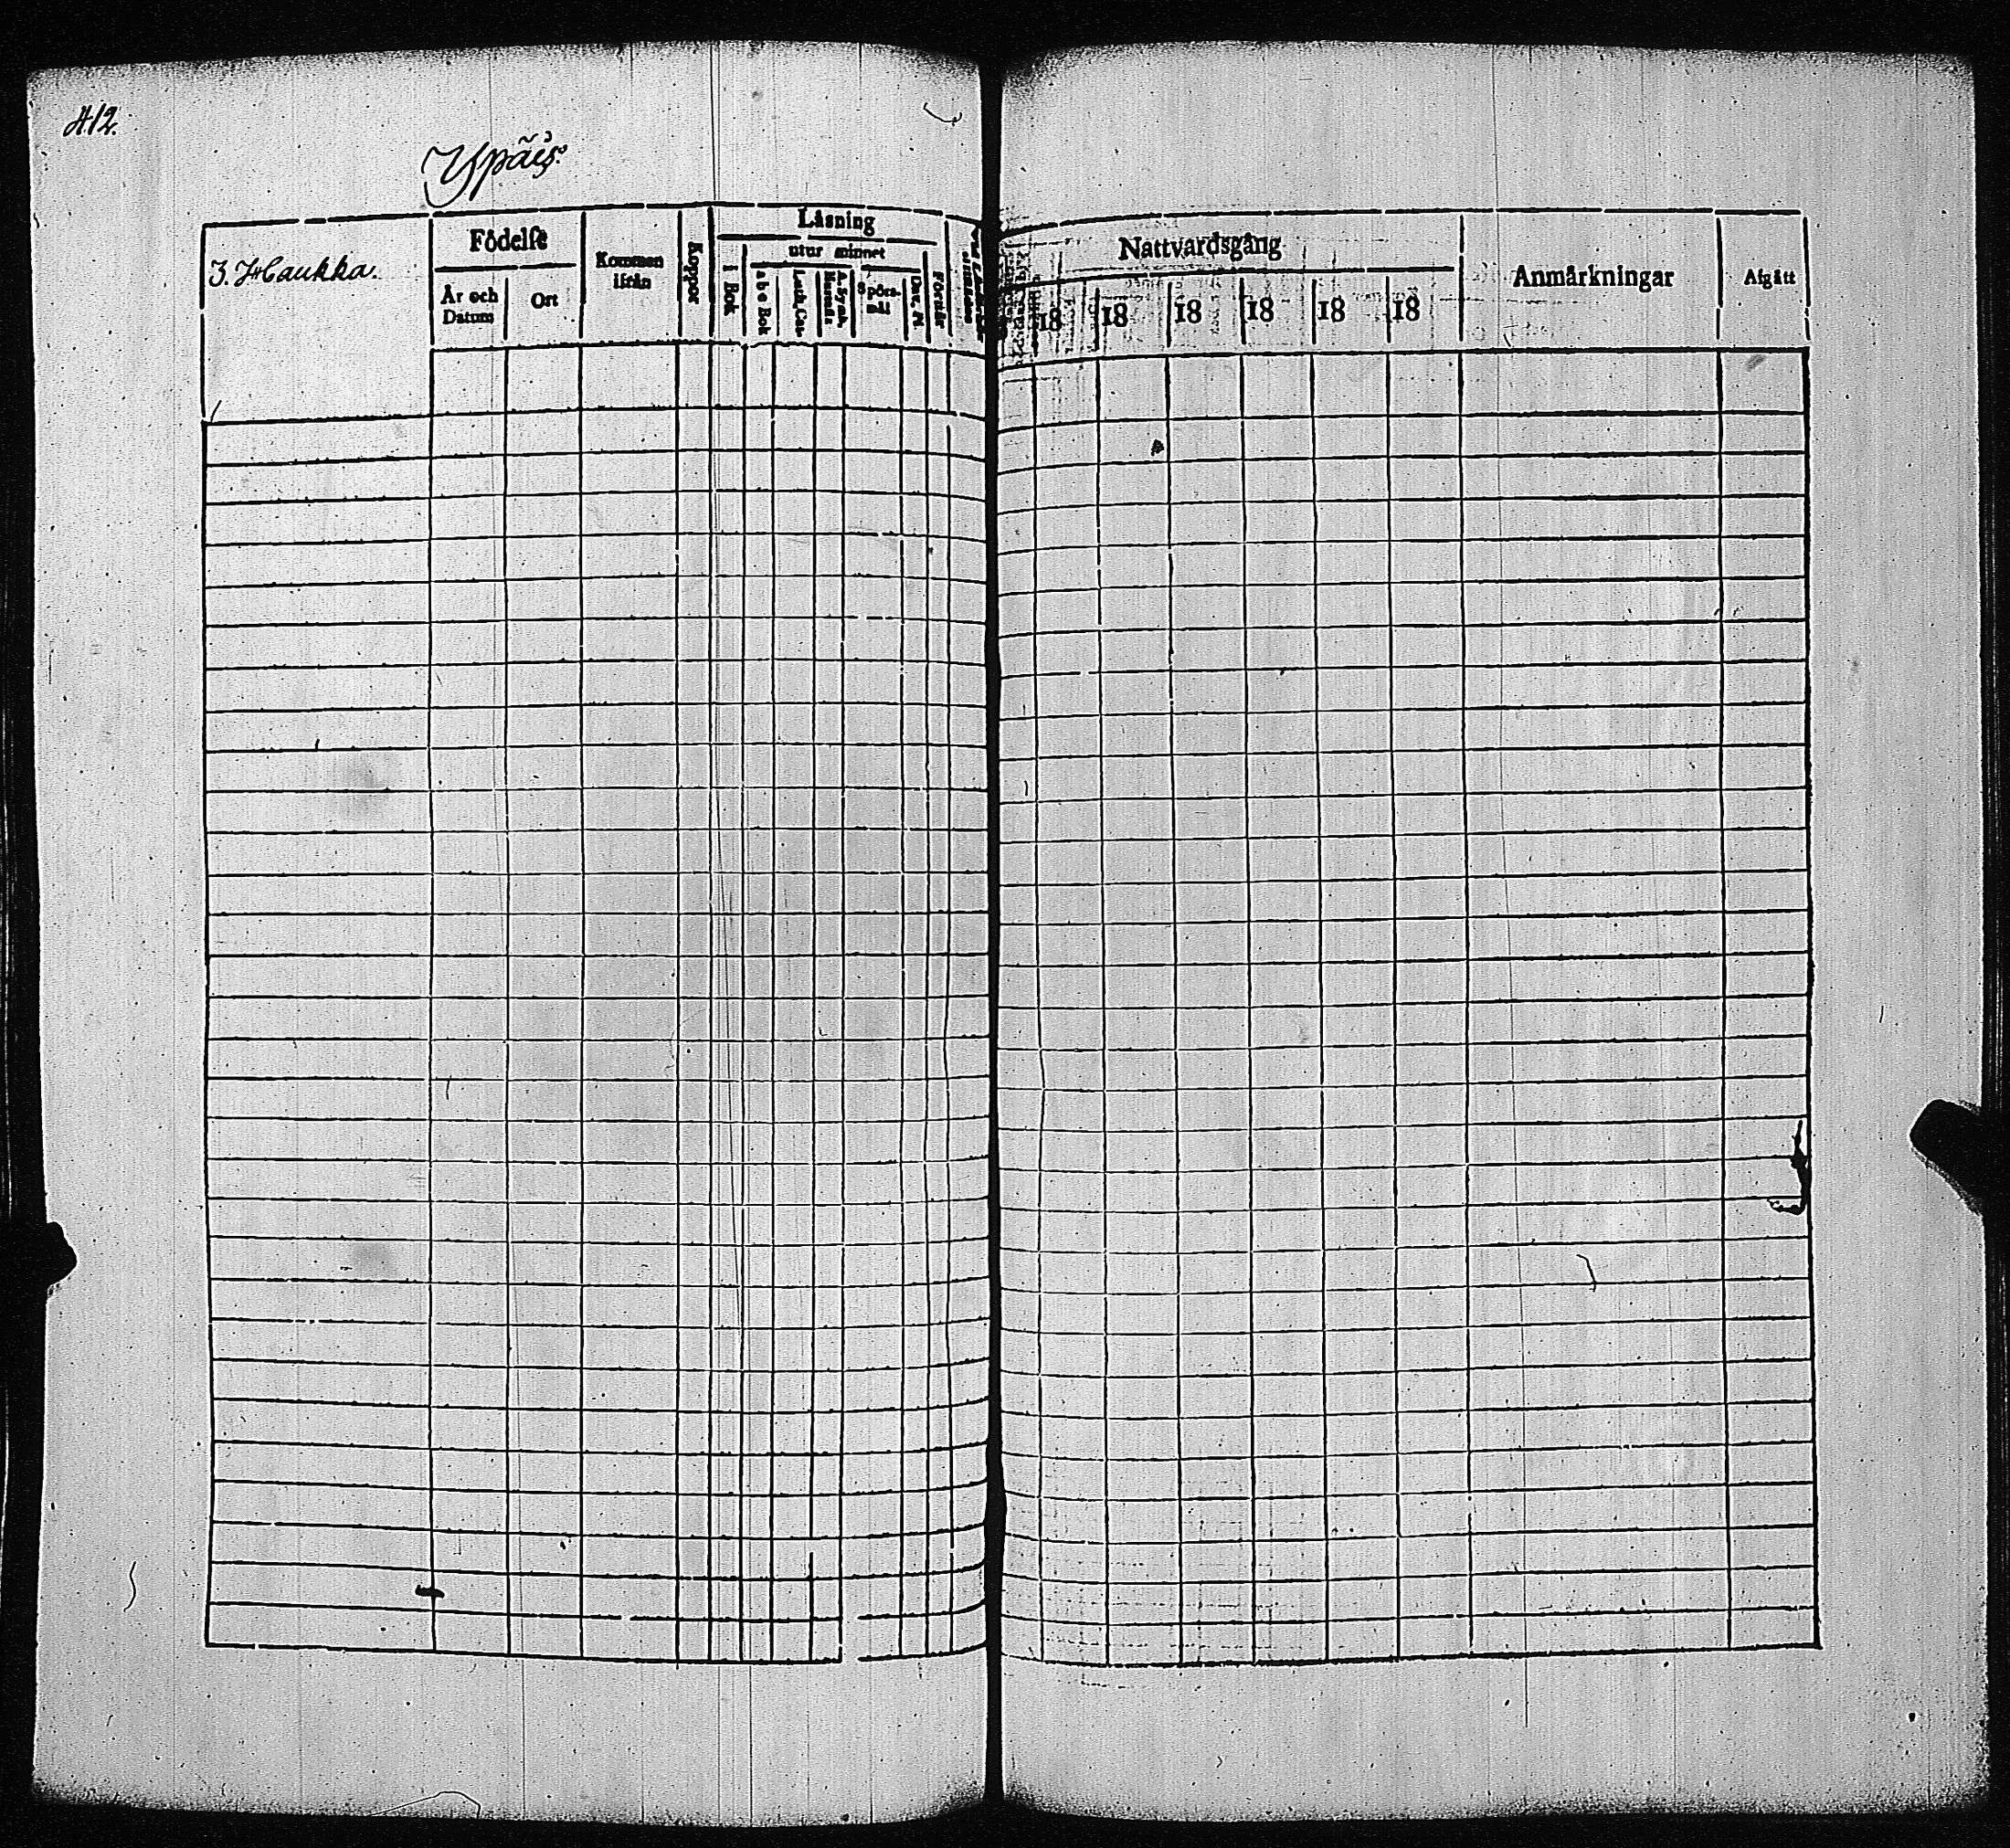 412.
Ypäis.
3. Haukka.
Födelse
År och Datum
Ort
Kommen ifrån
Koppor
Läsning
i Bok
utur minnet
a b c Bok
Luth. Cat.
Spörsmål
Dav. Ps.
Förstår
Nattvardsgång
18
18
18
18
18
18
Anmärkningar
Afgått